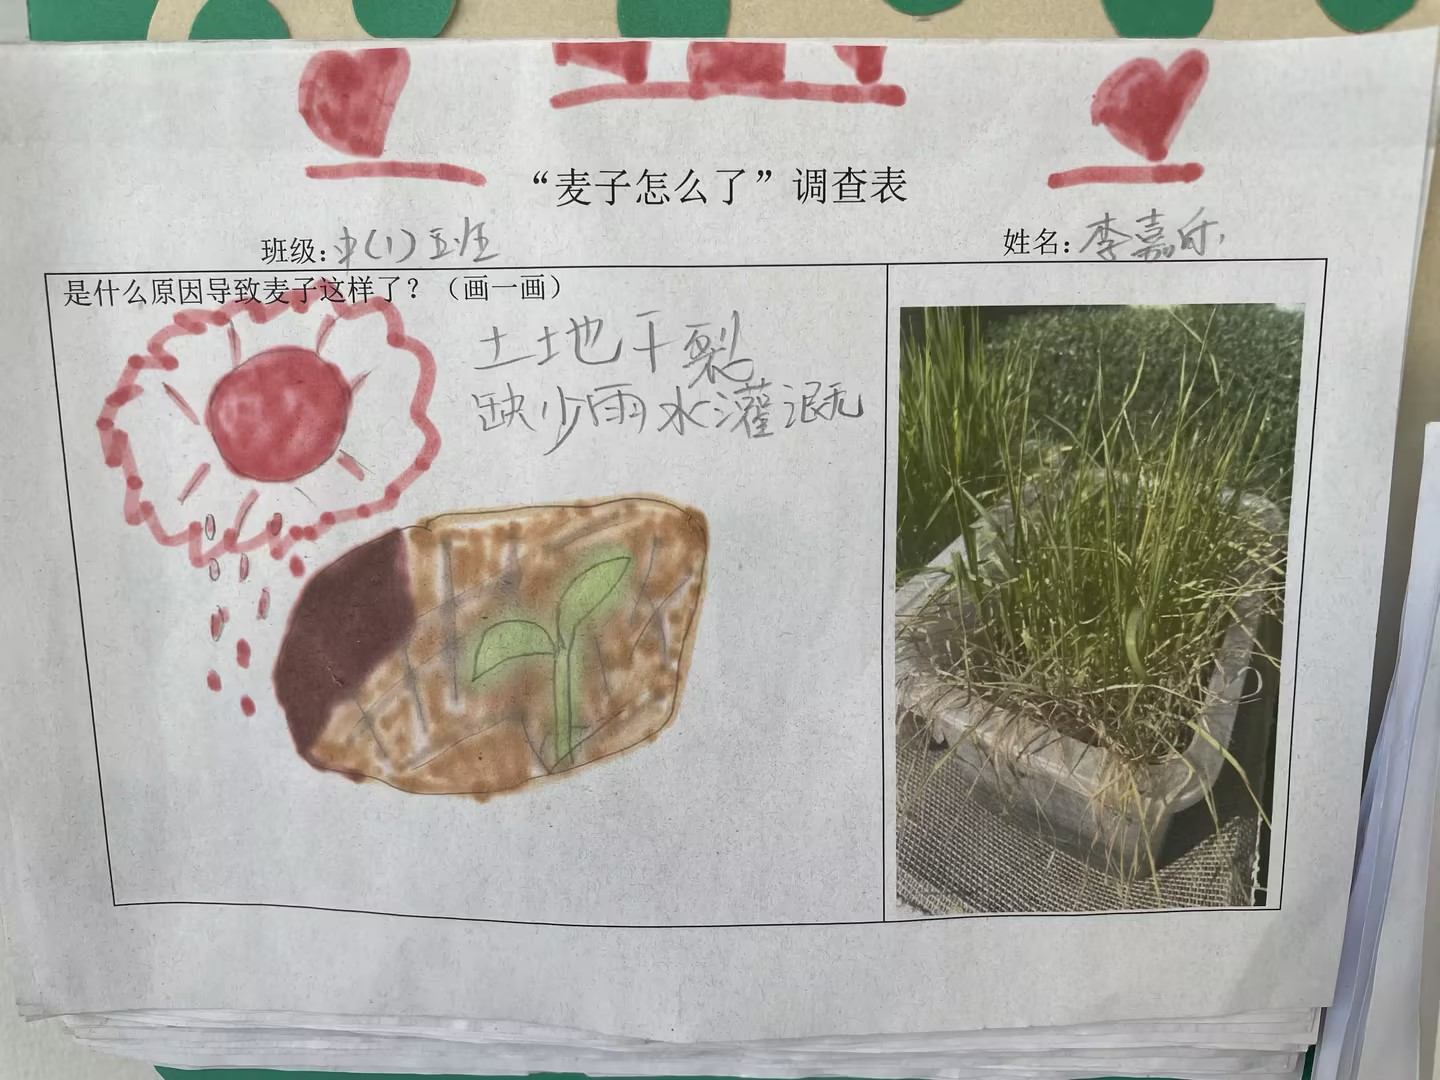 “麦子怎么了”调查表
班级:中(1)班
姓名:李嘉乐
是什么原因导致麦子这样了？（画一画）
土地干裂
缺少雨水灌溉